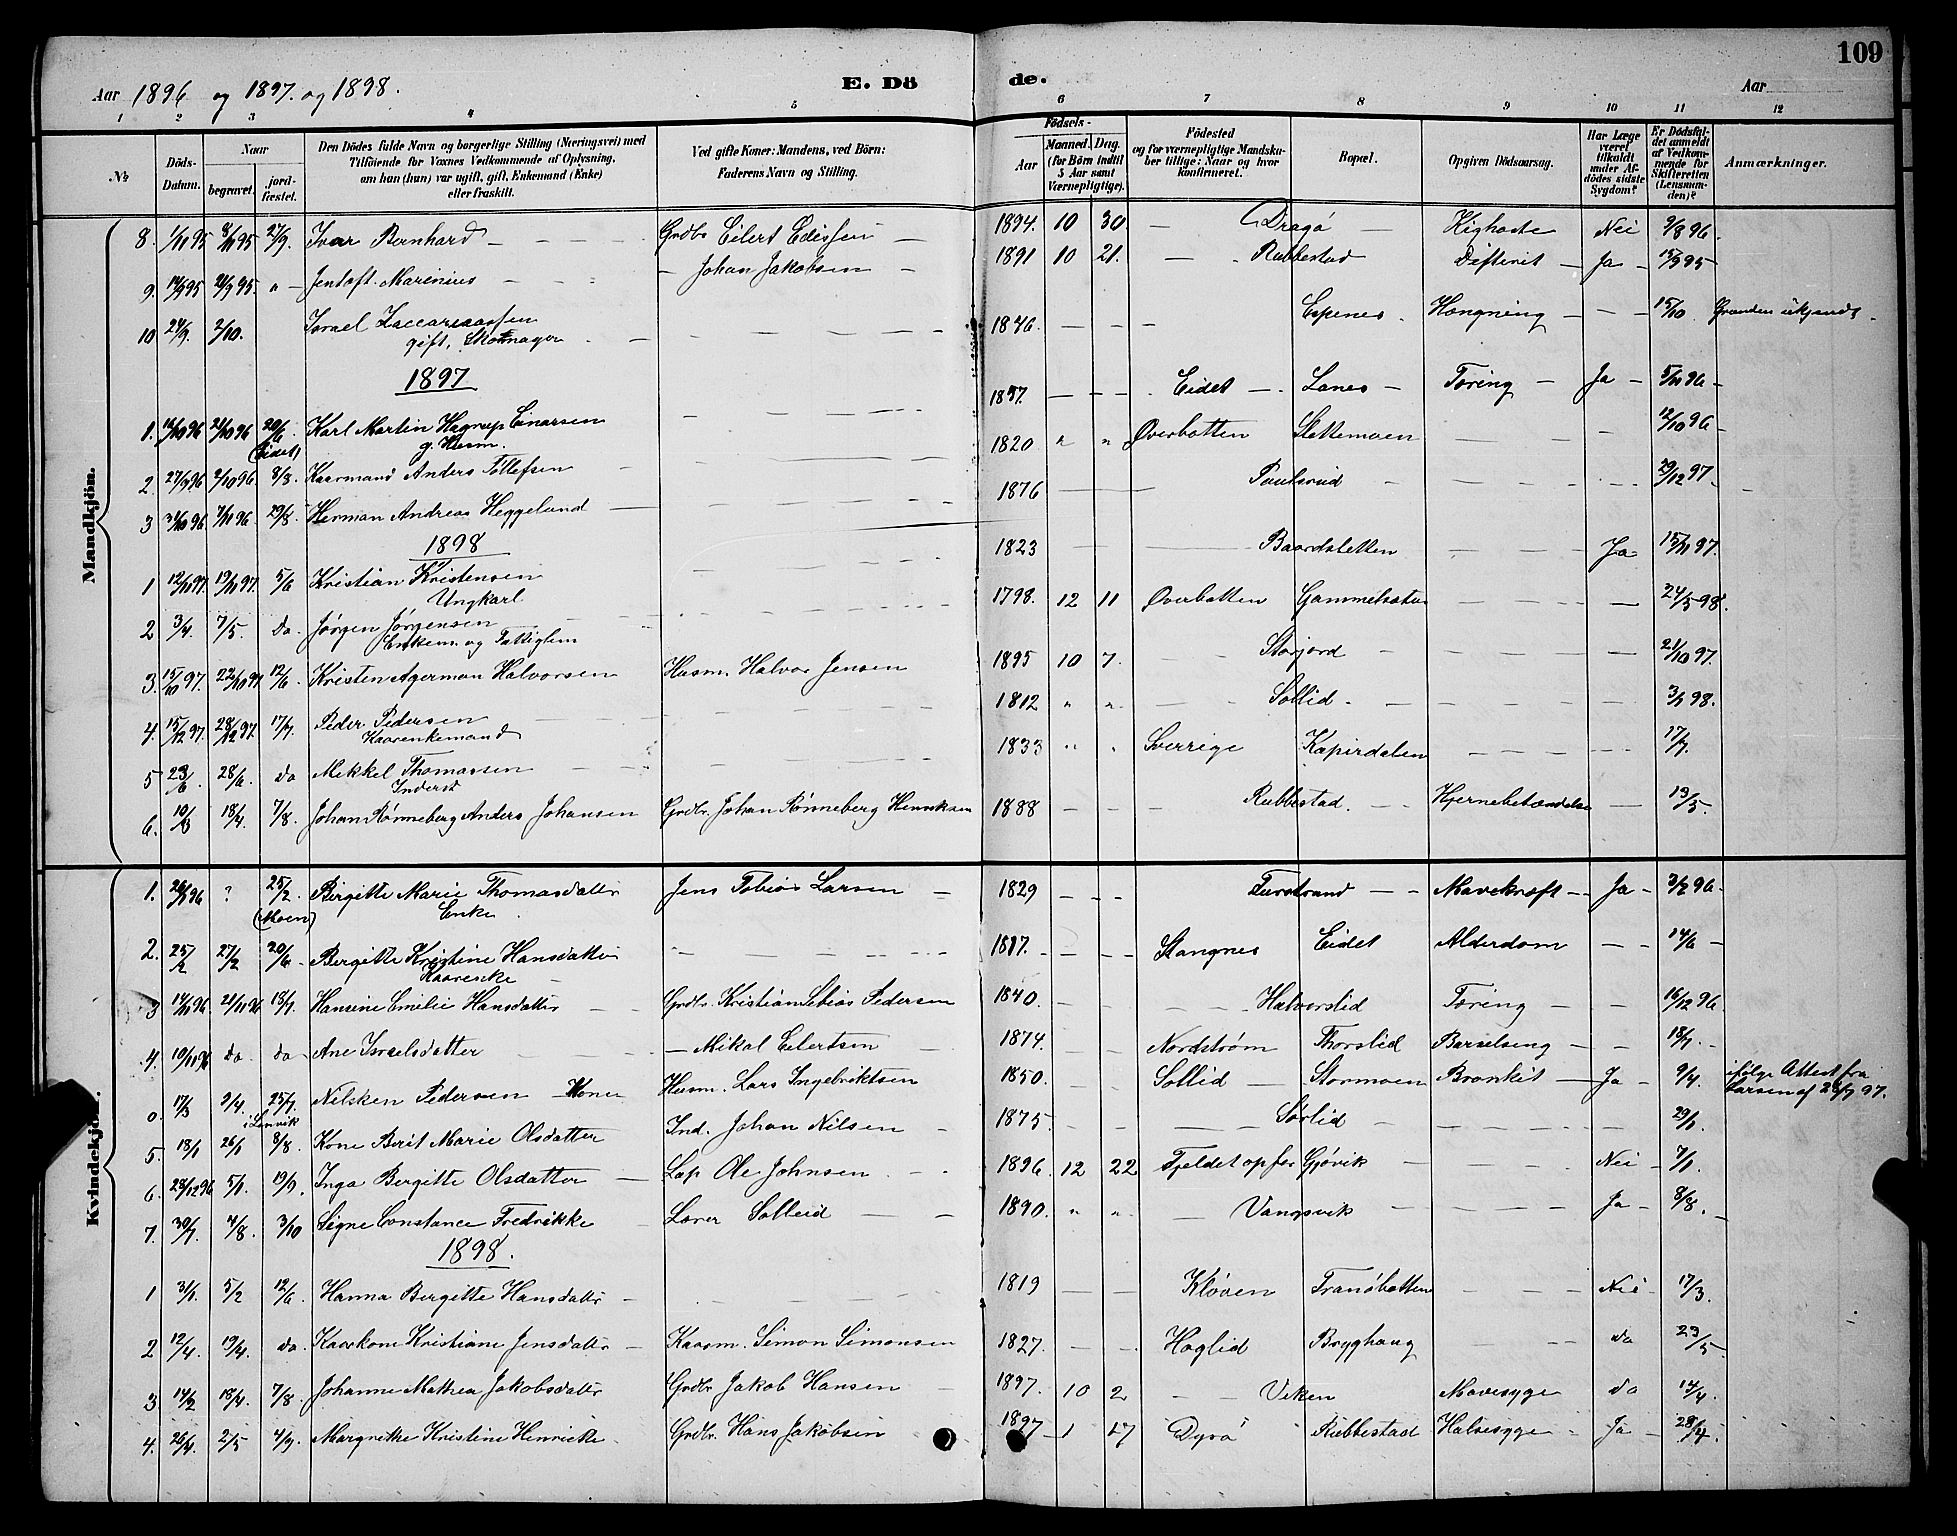 109
Aar 1896 og 1897. og 1898.
E. Dö
de.
Aar
1 2 3 4 5 6 7 8 9 10 11 12
№
Döds-Datum.
Naar
begravet.
jord-fæstet.
Den Dödes fulde Navn og borgerlige Stilling (Næringsvei) med
Tilföiende for Voxnes Vedkommende af Oplysning,
om han (hun) var ugift, gift, Enkemand (Enke)
eller fraskilt.
Ved gifte Koner: Mandens, ved Börn:
Faderens Navn og Stilling.
Födsels-
Aar
Maaned. Dag.
(for Börn indtil
5 Aar samt
Værnepligtige).
Födested
og for værnepligtige Mandsku-
ber tillige: Naar og hvor
konfirmeret.
Bopæl.
Opgiven Dödsaarsag.
Har Læge
været
tilkaldt
under Af-
dödes sidste
Sygdom?
Er Dödsfal-
det anmeldt
af Vedkom-
mende for
Skifteretten
(Lensman-
den)?
Anmærkninger.
Mandkjön.
8. 1/11 95 8/11 95 27/9. Ivar Bernhard Grdbr Eilert Edissen 1894. 10 30. Dragö Kighoste Nei 9/8 96.
9. 14/9 95 21/9 95. " Jentoft Marinius Johan Jakobsen 1891 10 21. Rubbestad Difterit Ja 15/9 95
10 24/9. 2/10. Israel Zaccariassen 1846. Espenes. Hængning 15/10. Grunden ukjendt.
gift, Skomager
1897
1. 14/10 96 21/10 96 20/6. Karl Martin Hagrup Einarsen 1857. Eidet Lanes Tæring Ja 5/11 96
(Eidet) g. Husm.
2. 27/9 96 2/10 96. 8/8. Kaarmand Anders Tollefsen 1820 " " Øverbotten Slettemoen 12/10 96
3 31/10 96 7/11 96. 29/8. Herman Andreas Heggelund 1876 Paulsrud 29/12 97.
1898
1 12/11 97. 19/11 97. 5/6 Kristian Kristensen 1823 Baardsletten Ja 15/11 97.
Ungkarl.
2 3/4. 7/5. Do. Jørgen Jørgensen 1798. 12 11 Øverbotten Gammelsæter 24/5 98.
Enkem. og Fattiglem
3. 15/10 97. 22/10 97. 12/6 Kristen Agerman Halvorsen Husm. Halvor Jensen 1895 10 7. Storjord 21/10 97.
4. 15/12 97. 28/12 97. 17/7. Peder Pedersen 1812 " " Sollid. 3/1 98.
Kaarenkemand
5 23/6 28/6. do Mikkel Thomassen 1833 " " Sverrige Kapirdalen 17/7.
Inderst
6. 10/3 18/4. 7/8. Johan Rønneberg Anders Johansen Grdbr. Johan Rønneberg Henriksen 1888 Rubbestad. Hjernebetændelse 13/5.
Kvindekjön.
1. 26/1 96 ? 25/2. Birgitte Marie Thomasdattr Jens Tobias Larsen 1829 Furstrand Mavekræft Ja 3/2 96
(Moen) Enke.
2. 25/2 27/2 20/6. Bergitte Kristine Hansdatter 1817. Stangnes Eidet Alderdom 14/6
Kaarenke
3 14/11 96 21/11 96 18/7. Hansine Emilie Hansdatter Grdbr. Kristian Pedersen 1840. Halvorslid Tæring 16/12 96
4. 10/11 96 do do Ane Israelsdatter Mikal Eilertsen 1874. Nordstrøm Thorslid Barselseng 18/7.
0. 17/3 9/4. 25/7. Nilsken Pedersen Kone Husm. Lars Ingebriktsen 1850. Sollid Stormoen Bronkit Ja 9/4. ifølge Attest fra
i Lenvik Larsen af 28/7 97.
5. 18/1 26/1 8/8. Kone Berit Marie Olsdatter Ind. Johan Nilsen 1875 Sørlid 29/1.
6. 28/12 96 5/1. 19/9. Inga Bergitte Olsdatter Lap Ole Johnsen 1896. 12 22 Fjeldet op for Gjøvik Nei 7/1.
7. 30/7. 4/8. 3/10 Signe Constance Fredrikke Lærer Solleid 1890. " " Vangsvik Ja 8/8.
1898.
1 31/1. 5/2 12/6 Hanna Bergitte Hansdattr 1819 Kløven Tranöbotten Nei 17/3.
2 12/4. 19/4. do. Kaarkone Kristiane Jensdattr Kaarm. Simon Simonsen 1827. Høglid Brygghaug do 23/5
3 14/2 18/4. 7/8. Johanne Mathea Jakobsdattr Grdbr Jakob Hansen 1897. 10 2 Viken Mavesyge do 14/4
4. 26/4. 2/5 4/9. Margrethe Kristine Henrikke Grdbr. Hans Jakobsen 1897 1 17 Dyrö Rubbestad Halssyge Ja 28/4.